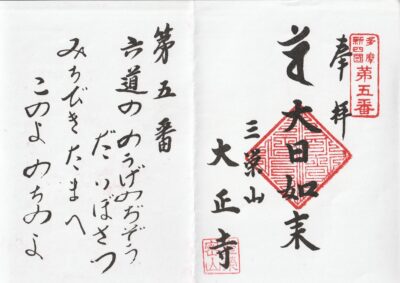 多摩
新四國
第五番
奉拝
大日如来
三榮山
大正寺
第五番
六道ののうげのぢぞう
だいぼさつ
みちびきたまへ
このよのちのよ